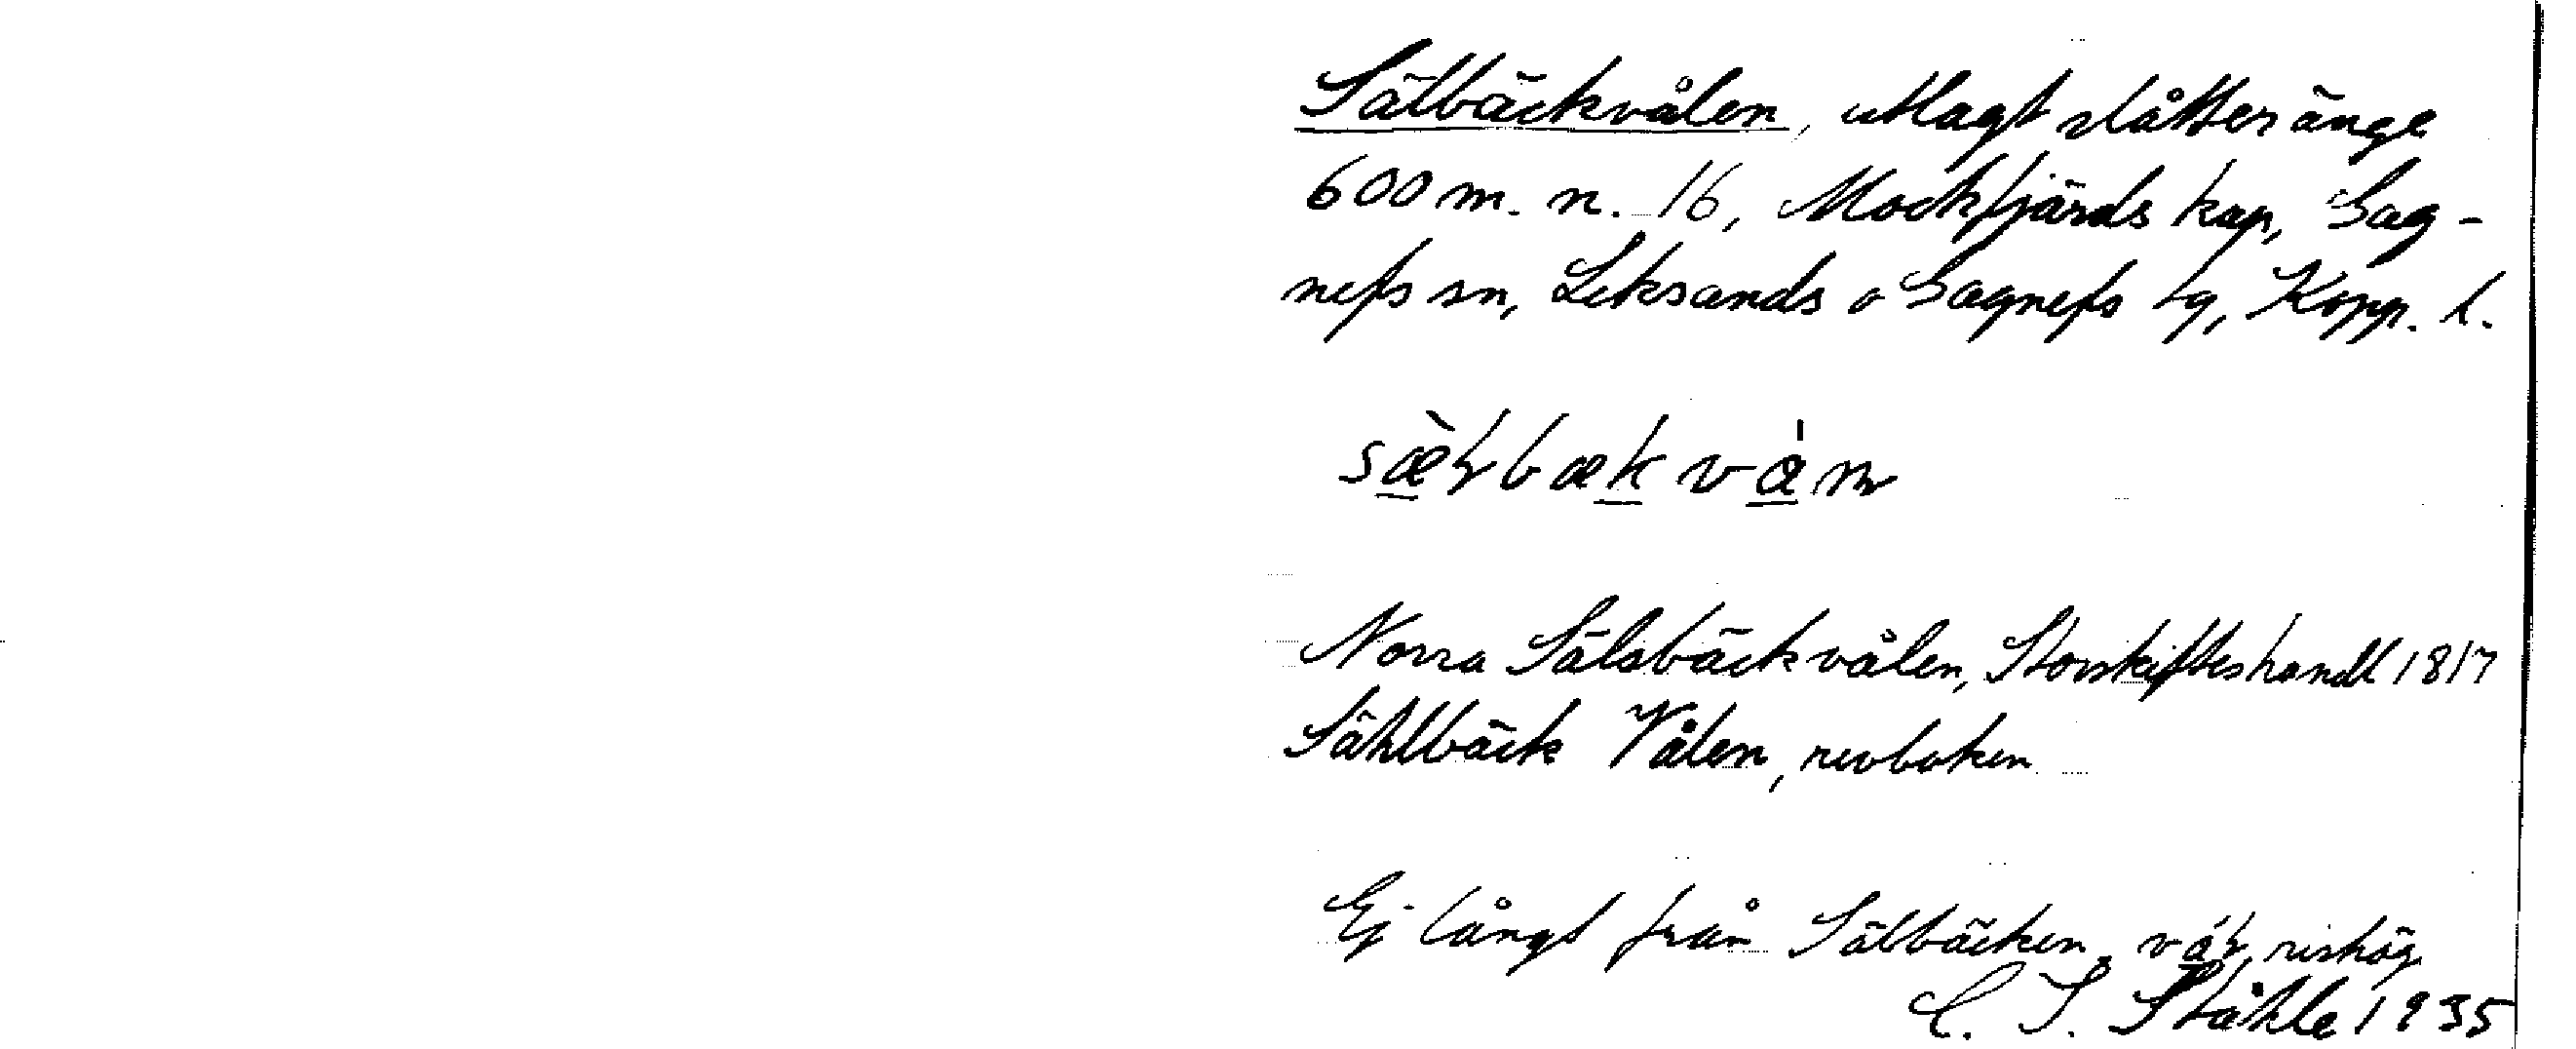 Sälbäckvålen, utlagt slåtteränge
600 m. n. 16, Mockfjärds kap, Gag-
nefs sn, Leksands o Gagnefs tg, Kopp. l.
Norra Sälsbäckvålen, Storskifteshandl 1817
Sählbäck Vålen, revboken
Ej långt från Sälbäcken, rishög
C. I. Ståhle 1935